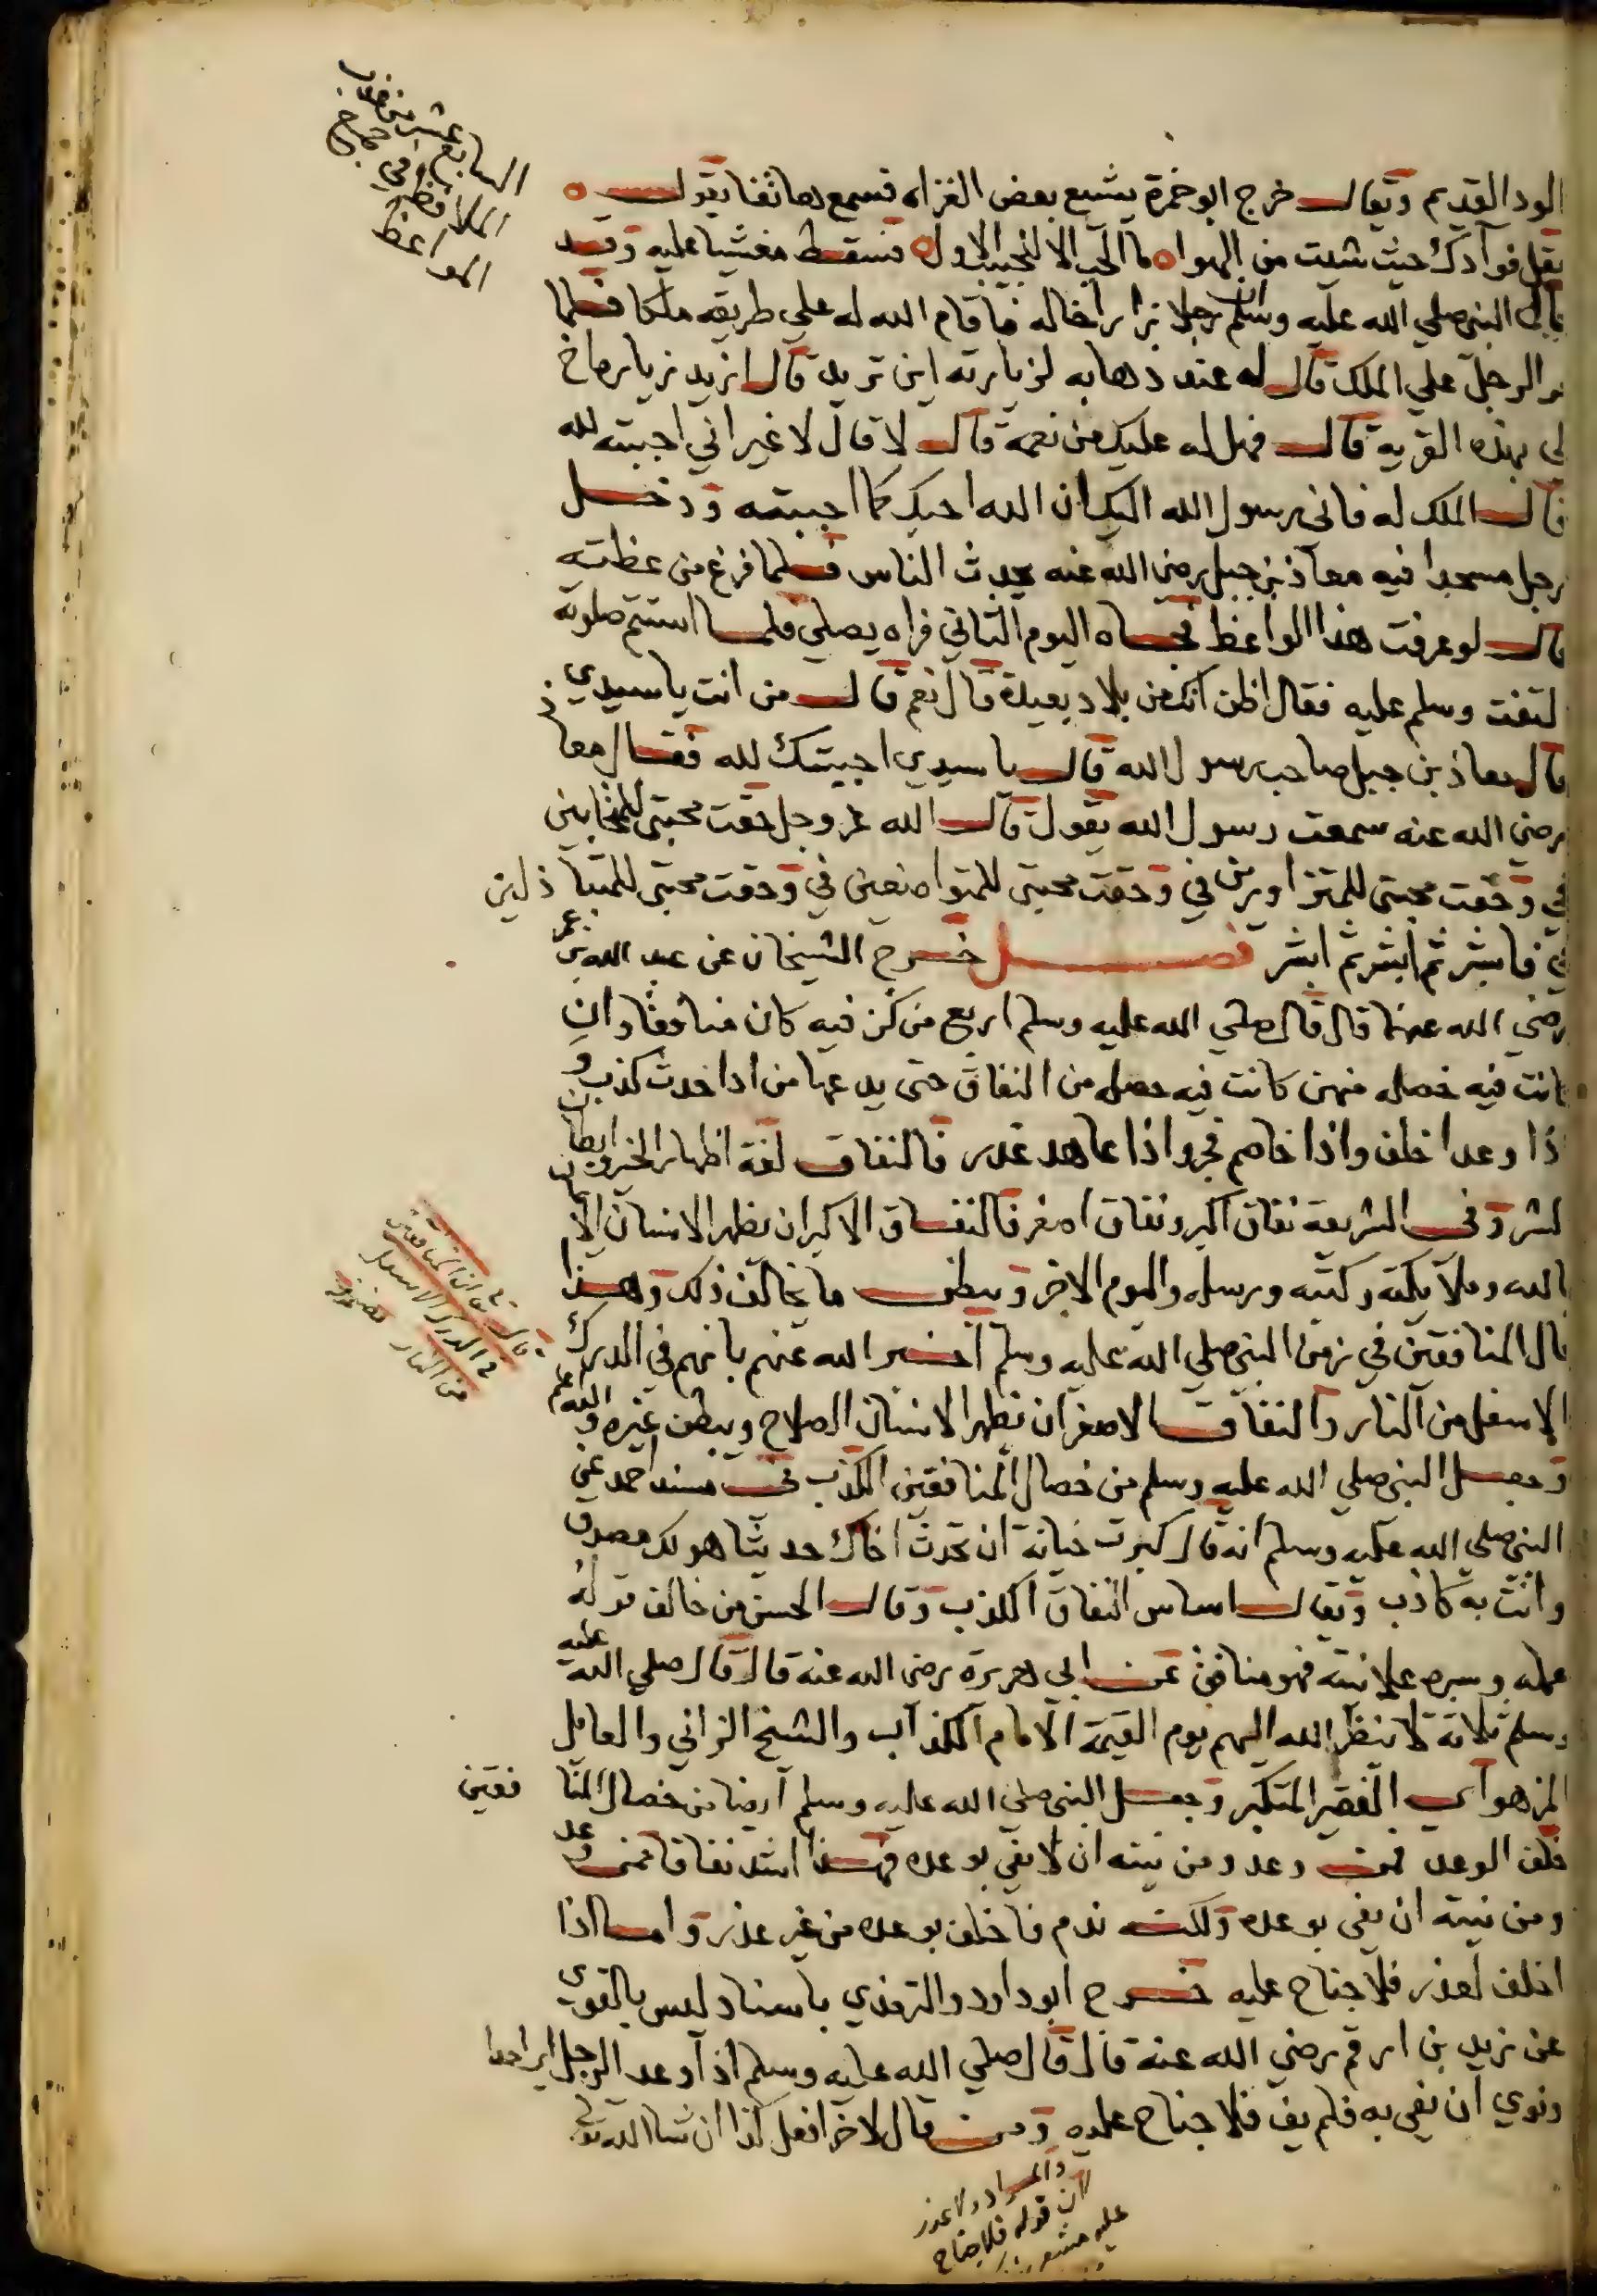 السابع عشر من كتاب
الملاقظ في جمع
المواعظ
الود القديم ويقال خرج ابو حمزة يشيع بعض الغزاه فسمع هاتفا يقول
نقل فوآدك حيث شيت من الهوا ما الحب الا للحبيب الاول فسقط مغشيا عليه وقد
قال النبي صلي الله عليه وسلم ان رجلا زار اخا له فاقام الله له علي طريقه ملكا فلما
مر الرجل علي الملك قال له عند ذهابه لزيارته اين تريد قال اريد زيارة اخ
لي بهذه القرية قال فهل له عليك من نعمة قال لا قال لا غير اني احببته لله
قال الملك له فاني رسول الله اليك ان الله احبك كما احببته ودخل
رجل مسجدا فيه معاذ بن جبل رضي الله عنه يحدث الناس فلما فرغ من عظته
قال لو عرفت هذا الواعظ فجاه اليوم الثاني فراه يصلي فلما استتم صلوته
التفت وسلم عليه فقال اظن انك من بلاد بعيدة قال نعم قال من انت يا سيدي
قال معاذ بن جبل صاحب رسول الله قال يا سيدي احببتك لله فقال معاذ
رضي الله عنه سمعت رسول الله يقول قال الله عز وجل حقت محبتي للمتحابين
في وحقت محبتي للمتزاورين في وحقت محبتي للمتواضعين في وحقت محبتي للمتباذلين
في فابشر ثم ابشر ثم ابشر فصل خرج الشيخان عن عبد الله بن عمر
رضي الله عنهما قال قال صلي الله عليه وسلم اربع من كن فيه كان منافقا وان
كانت فيه خصله منهن كانت فيه خصله من النفاق حتى يدعها من اذا حدث كذب و
اذا وعد اخلف واذا خاصم فجر واذا عاهد غدر فالنفاق لغة اظهار الخير وابطان
الشر وفي الشريعة نفاق اكبر ونفاق اصغر فالنفاق الاكبر ان يظهر الانسان الايمان
بالله وملآيكته وكتبه ورسله واليوم الاخر ويبطن ما يخالف ذلك وهذا
حال المنافقين في زمن النبي صلي الله عليه وسلم اخبر الله عنهم بانهم في الدرك
قال تعالى ان المنافقين
في الدرك الاسفل
من النار
الاسفل من النار والنفاق الاصغر ان يظهر الانسان الصلاح ويبطن غيره والله اعلم
وجعل النبي صلي الله عليه وسلم من خصال المنافقين الكذب في مسند احمد عن
النبي صلي الله عليه وسلم انه قال كبرت خيانة ان تحدث اخاك حديثا هو لك مصدق
وانت به كاذب ويقال اساس النفاق الكذب وقال الحسن من خالف قوله
عمله وسره علانيته فهو منافق عن ابي هريرة رضي الله عنه قال قال صلي الله عليه
وسلم ثلاثة لا ينظر الله اليهم يوم القيمة الامام الكذاب والشيخ الزاني والعايل
المزهو اي الفقير المتكبر وجعل النبي صلي الله عليه وسلم ايضا من خصال المنافقين
خلف الوعد فمن وعد ومن نيته ان لا يفي بوعده فهذا اشد نفاقا ممن وعد
ومن نيته ان يفي بوعده ولكنه ندم فاخلف بوعده من غير عذر واما اذا
اخلف لعذر فلا جناح عليه خرج ابو داود والترمذي باسناد ليس بالقوي
عن زيد بن ارقم رضي الله عنه قال قال صلي الله عليه وسلم اذا وعد الرجل
ونوي ان يفي به فلم يف فلا جناح عليه ومن قال لاخر افعل كذا ان شا الله تعالى
والمراد ولا عذر
لان قوله فلا جناح
عليه مشعر